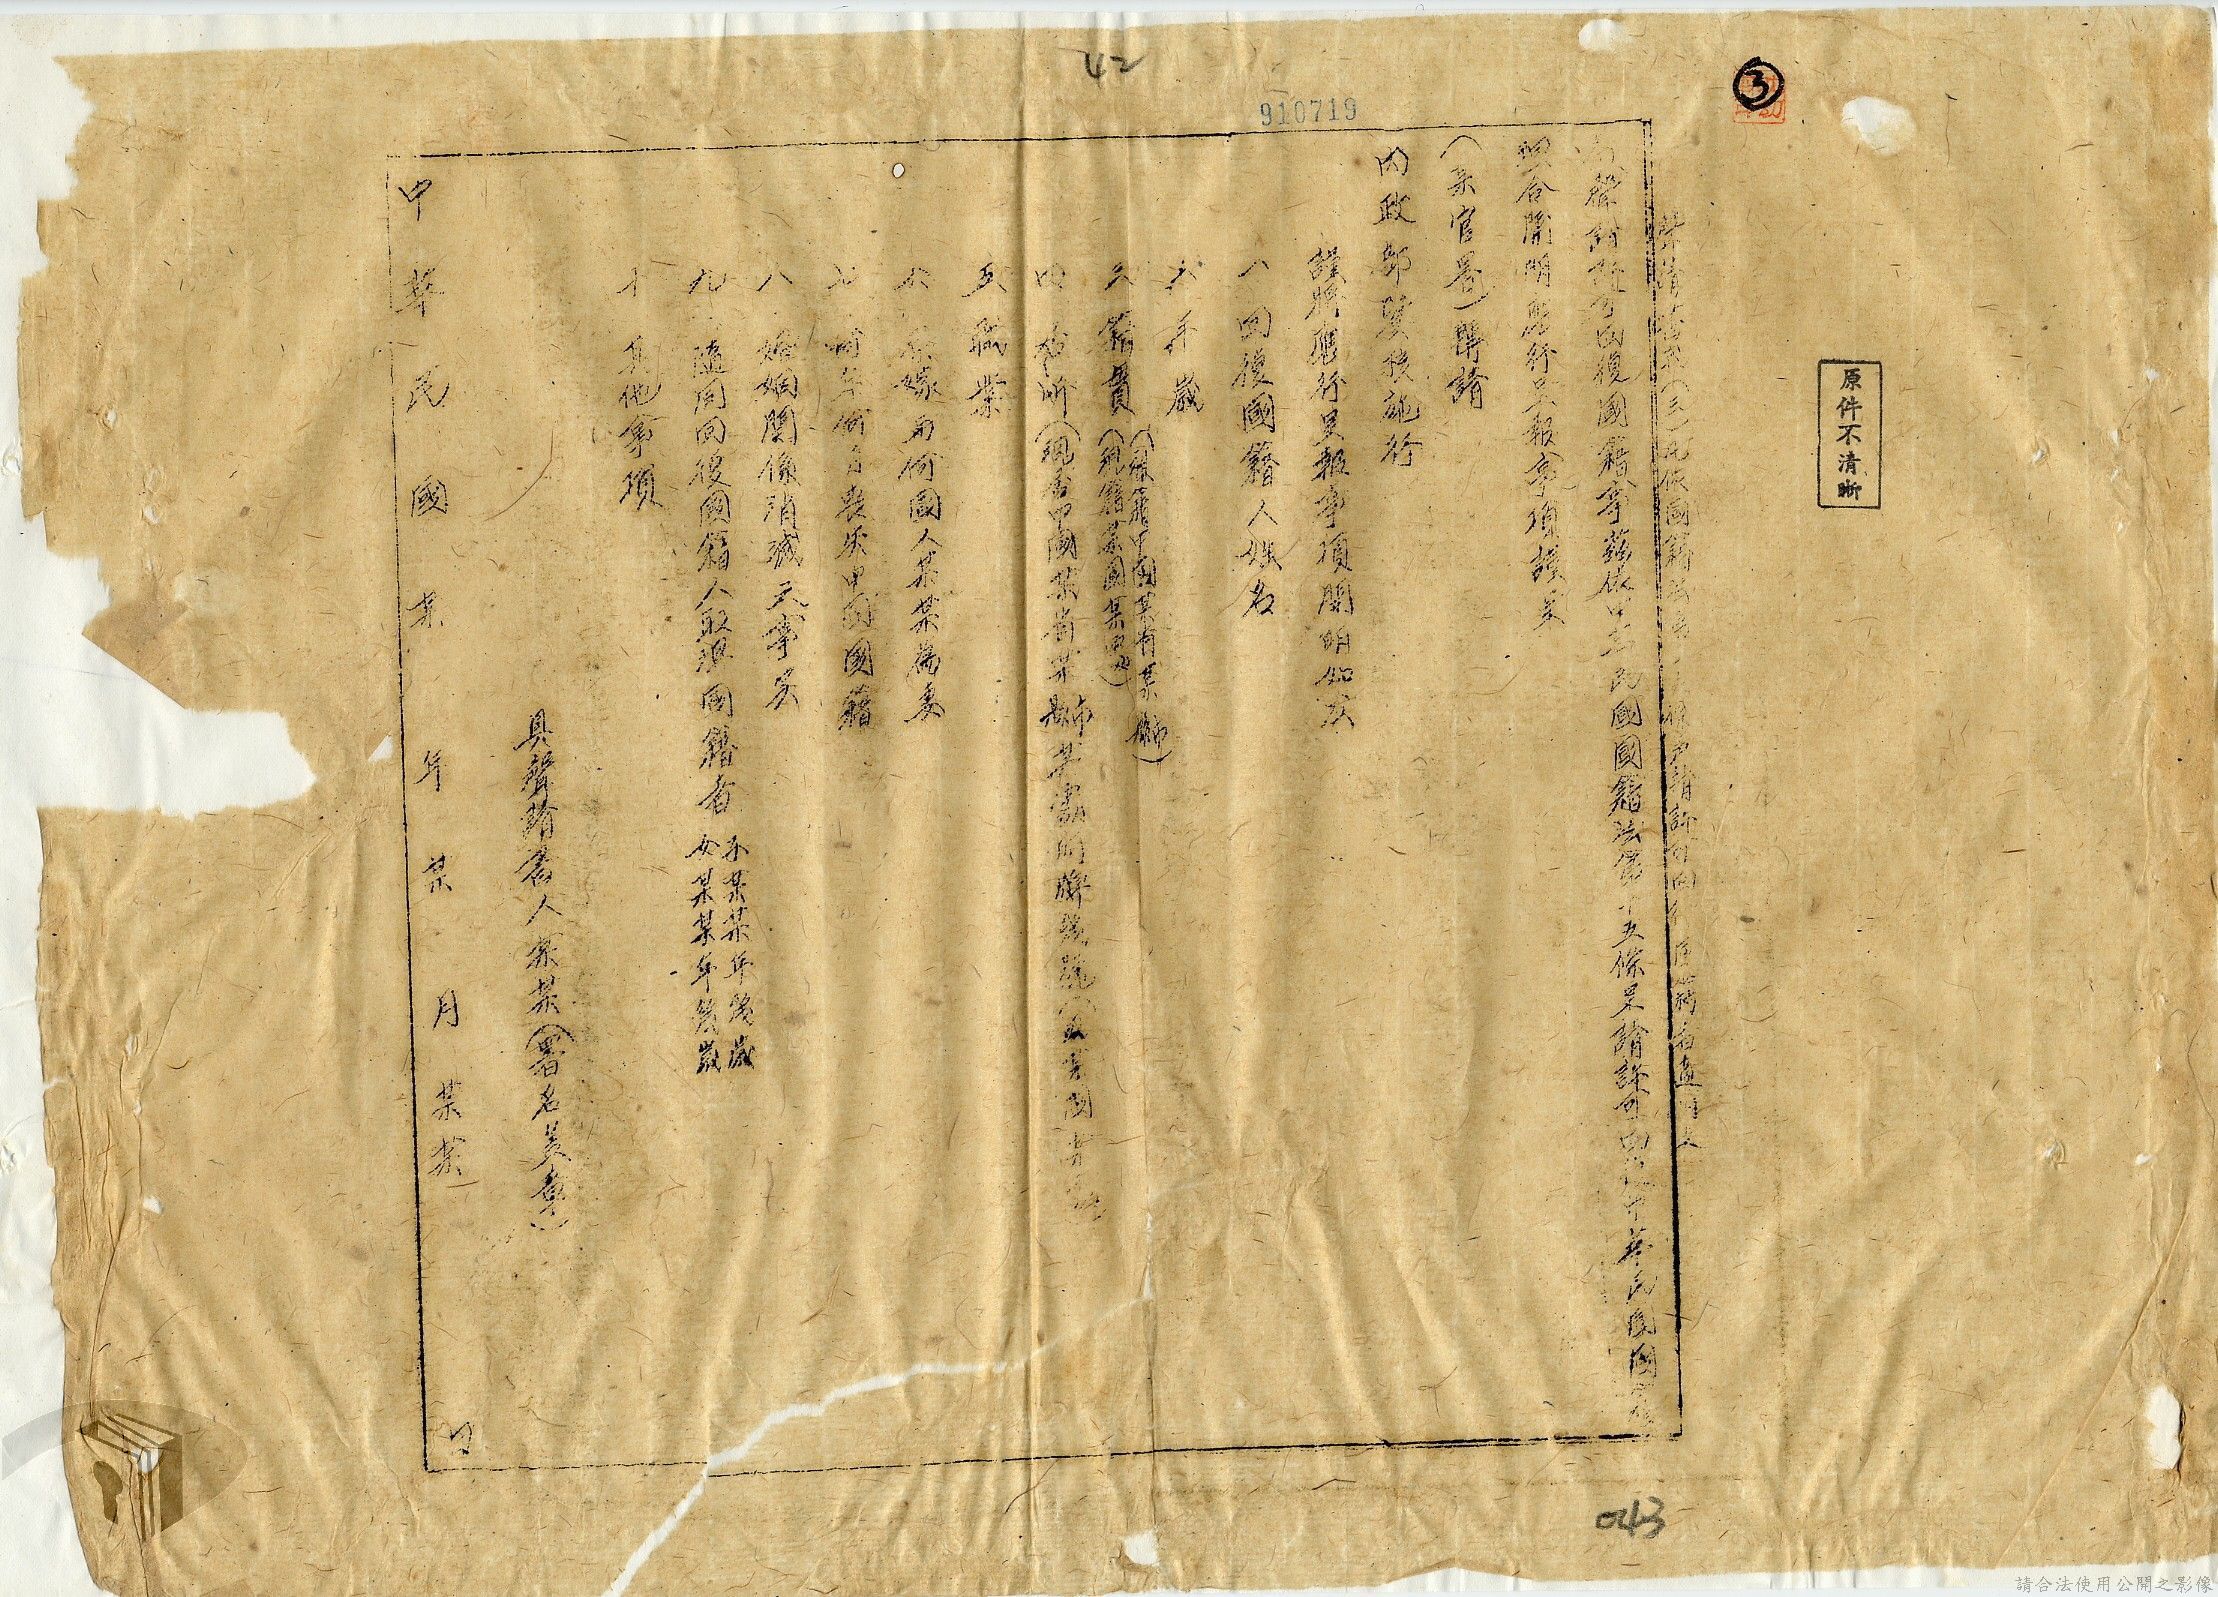 42
910719
③
原件不清晰
聲請書式(三)凡依國籍法第
為聲請許可回復國籍事茲依中華民國國籍法第十五條呈請許可回復中華民國國籍
照合開明應行呈報事項謹呈
(某官署)轉請
內政部鑒核施行
謹將應行呈報事項開明如次
回復國籍人姓名
年歲
籍貫(原籍中國某省某縣市)
(現籍某國某地)
四 住所(現居中國某省某縣市某處門牌幾號
五 職業
六 原嫁為何國人某某為妻
七 時喪失中國國籍
八 婚姻關係消滅之事實
九 隨同回復國籍人取得國籍者 子某某年幾歲
女某某年幾歲
十 其他事項
具聲請書人某某(署名蓋章)
中華民國某年某月某某日
043
請合法使用公開之影像